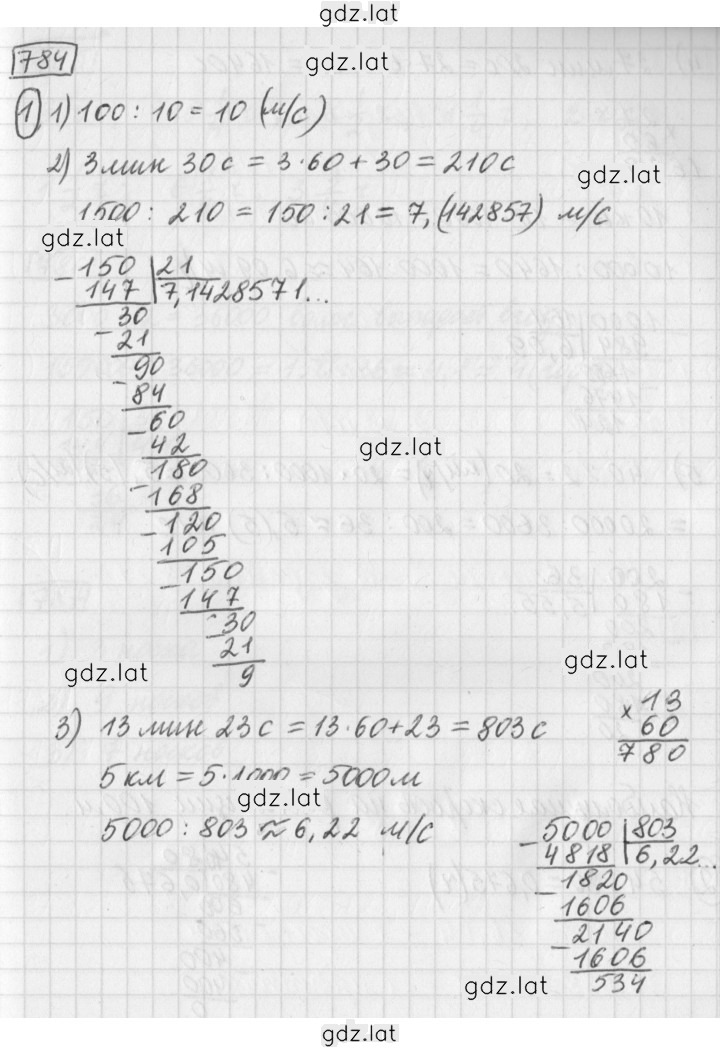 gdz.lat
784
gdz.lat
1) 1) 100 : 10 = 10 (м/с)
2) 3 мин 30 с = 3·60 + 30 = 210 с
gdz.lat
1500 : 210 = 150 : 21 = 7,(142857) м/с
gdz.lat
- 150 | 21
147 | 7,1428571...
30
- 21
90
- 84
60
- 42
gdz.lat
180
- 168
120
- 105
150
- 147
30
- 21
9
gdz.lat
gdz.lat
3) 13 мин 23 с = 13·60 + 23 = 803 с
× 13
60
780
5 км = 5·1000 = 5000 м
gdz.lat
5000 : 803 ≈ 6,22 м/с
- 5000 | 803
4818 | 6,22...
- 1820
1606
- 2140
1606
534
gdz.lat
gdz.lat